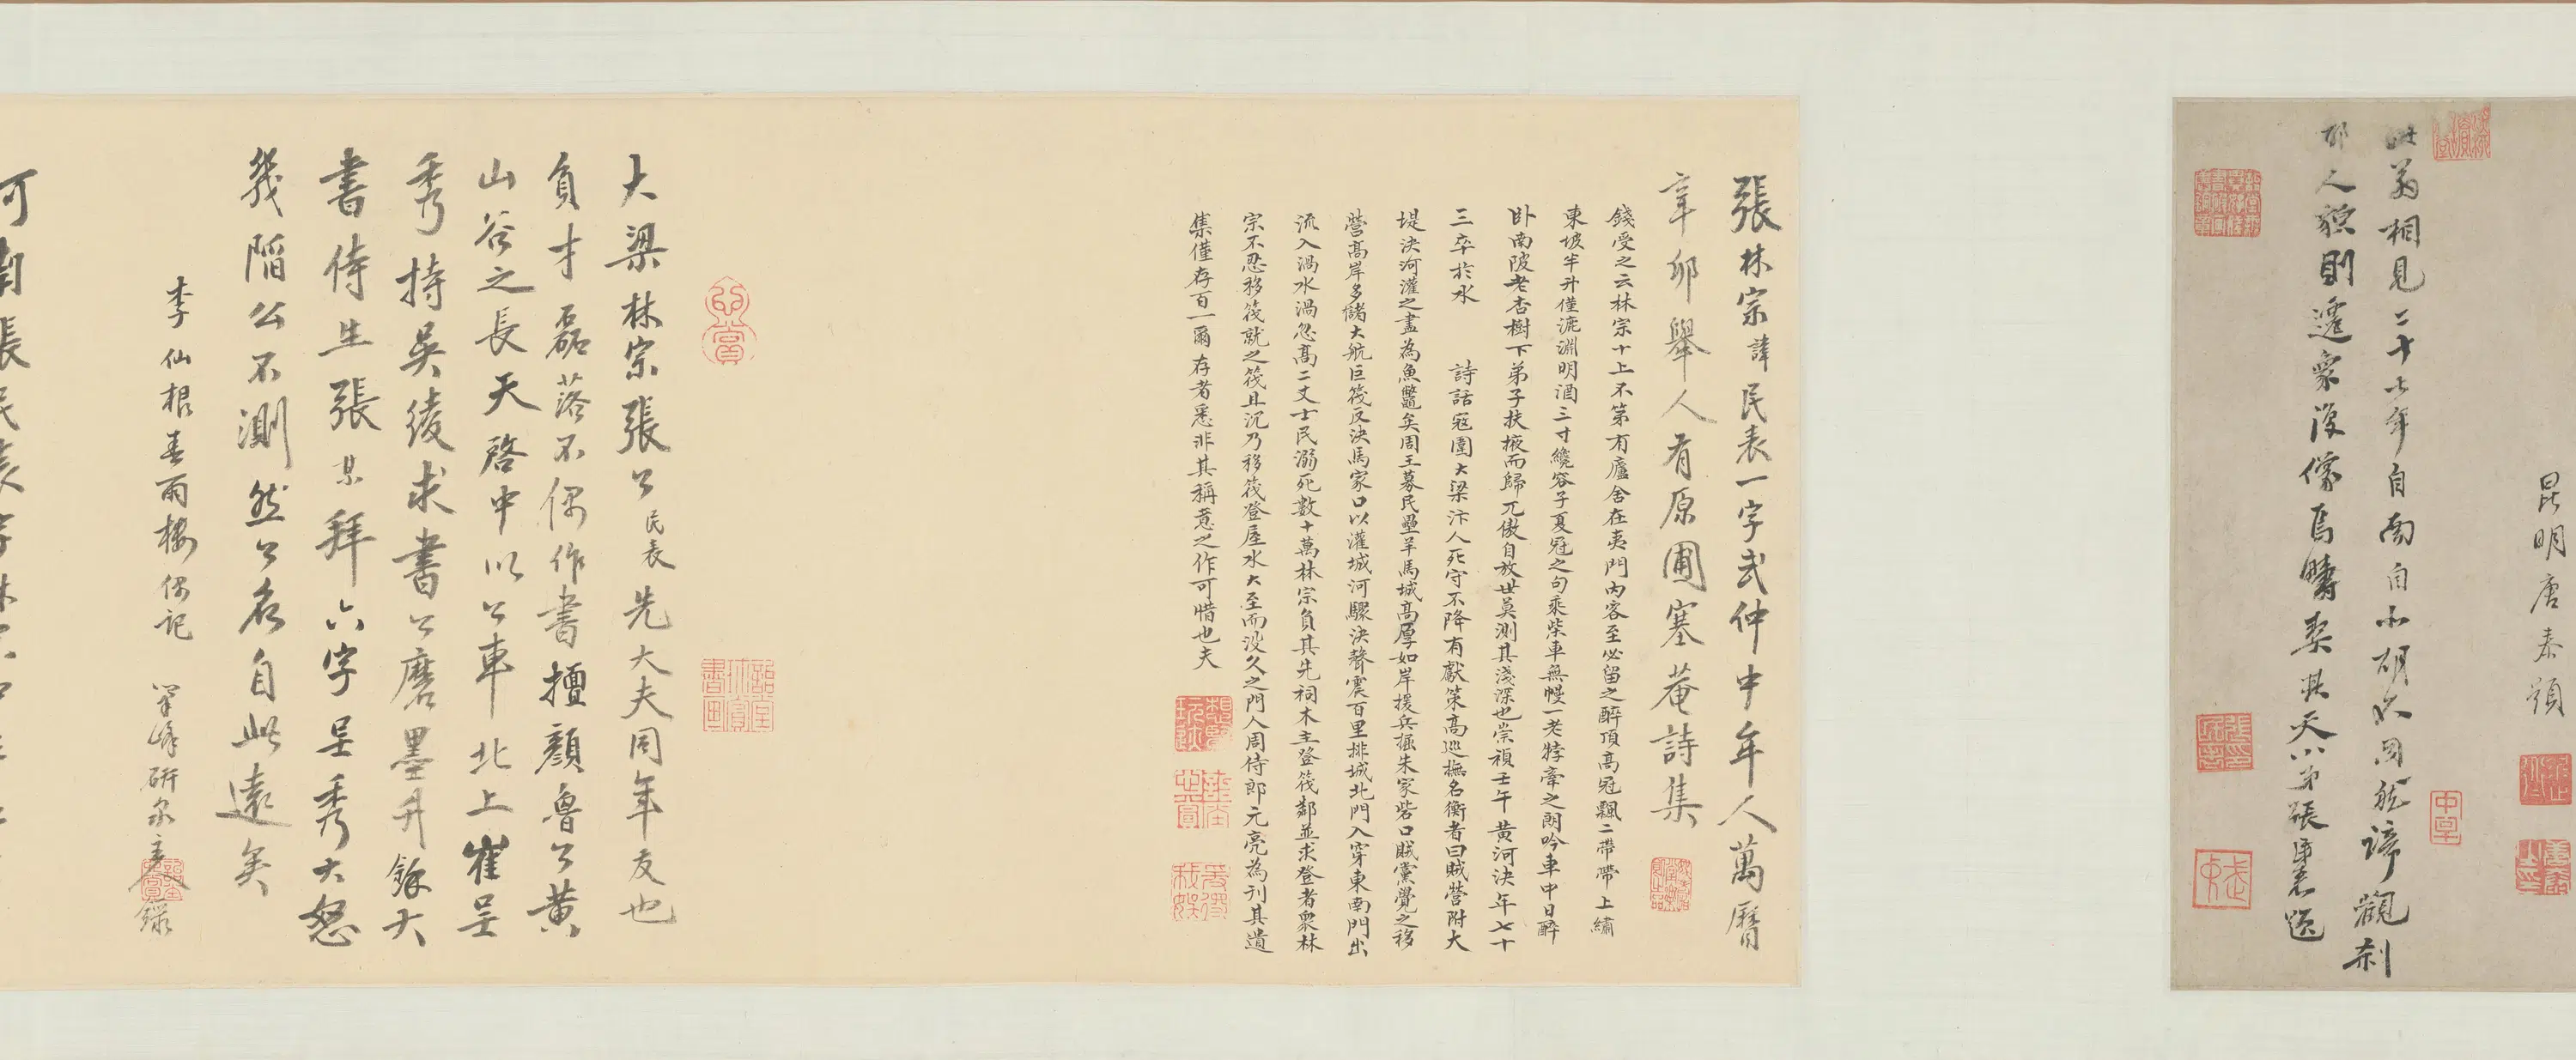 昆明唐泰題
此翁相見二十七年自南自北胡必同能諦觀刹
那人貌則遷眾沒像焉疇委其天八弟張
張林宗諱民表一字武仲中年人萬曆
辛卯舉人有原圃塞菴詩集
錢受之云林宗十上不第有廬舍在夷門內客至必留之醉頂高冠飄二帶帶上繡
東坡半升僅漉淵明酒三寸纔容子夏冠之句乘柴車無幔一老牸牽之朗吟車中日醉
臥南陂老杏樹下弟子扶掖而歸兀傲自放世莫測其淺深也崇禎壬午黃河決年七十
三卒於水 詩話寇圍大梁汴人死守不降有獻策高巡撫名衡者曰賊營附大
堤決河灌之盡為魚鱉矣周王募民壘羊馬城高厚如岸援兵掘朱家砦口賊黨覺之移
營高岸多儲大航巨筏反決馬家口以灌城河驟決聲震百里排城北門入穿東南門出
流入渦水渦忽高二丈士民溺死數十萬林宗負其先祠木主登筏鄰並求登者眾林
宗不忍移筏就之筏且沉乃移筏登屋水大至而沒久之門人周侍郎元亮為刊其遺
集僅存百一爾存者悉非其稱意之作可惜也夫
大梁林宗張公民表先大夫同年友也
負才磊落不偶作書擅顏魯公黃
山谷之長天啓中以公車北上崔呈
秀持吳綾求書公磨墨升餘大
書侍生張某拜六字呈秀大怒
幾陷公不測然公名自此遠矣
李仙根春雨樓偶記
翠峰研泉主人錄